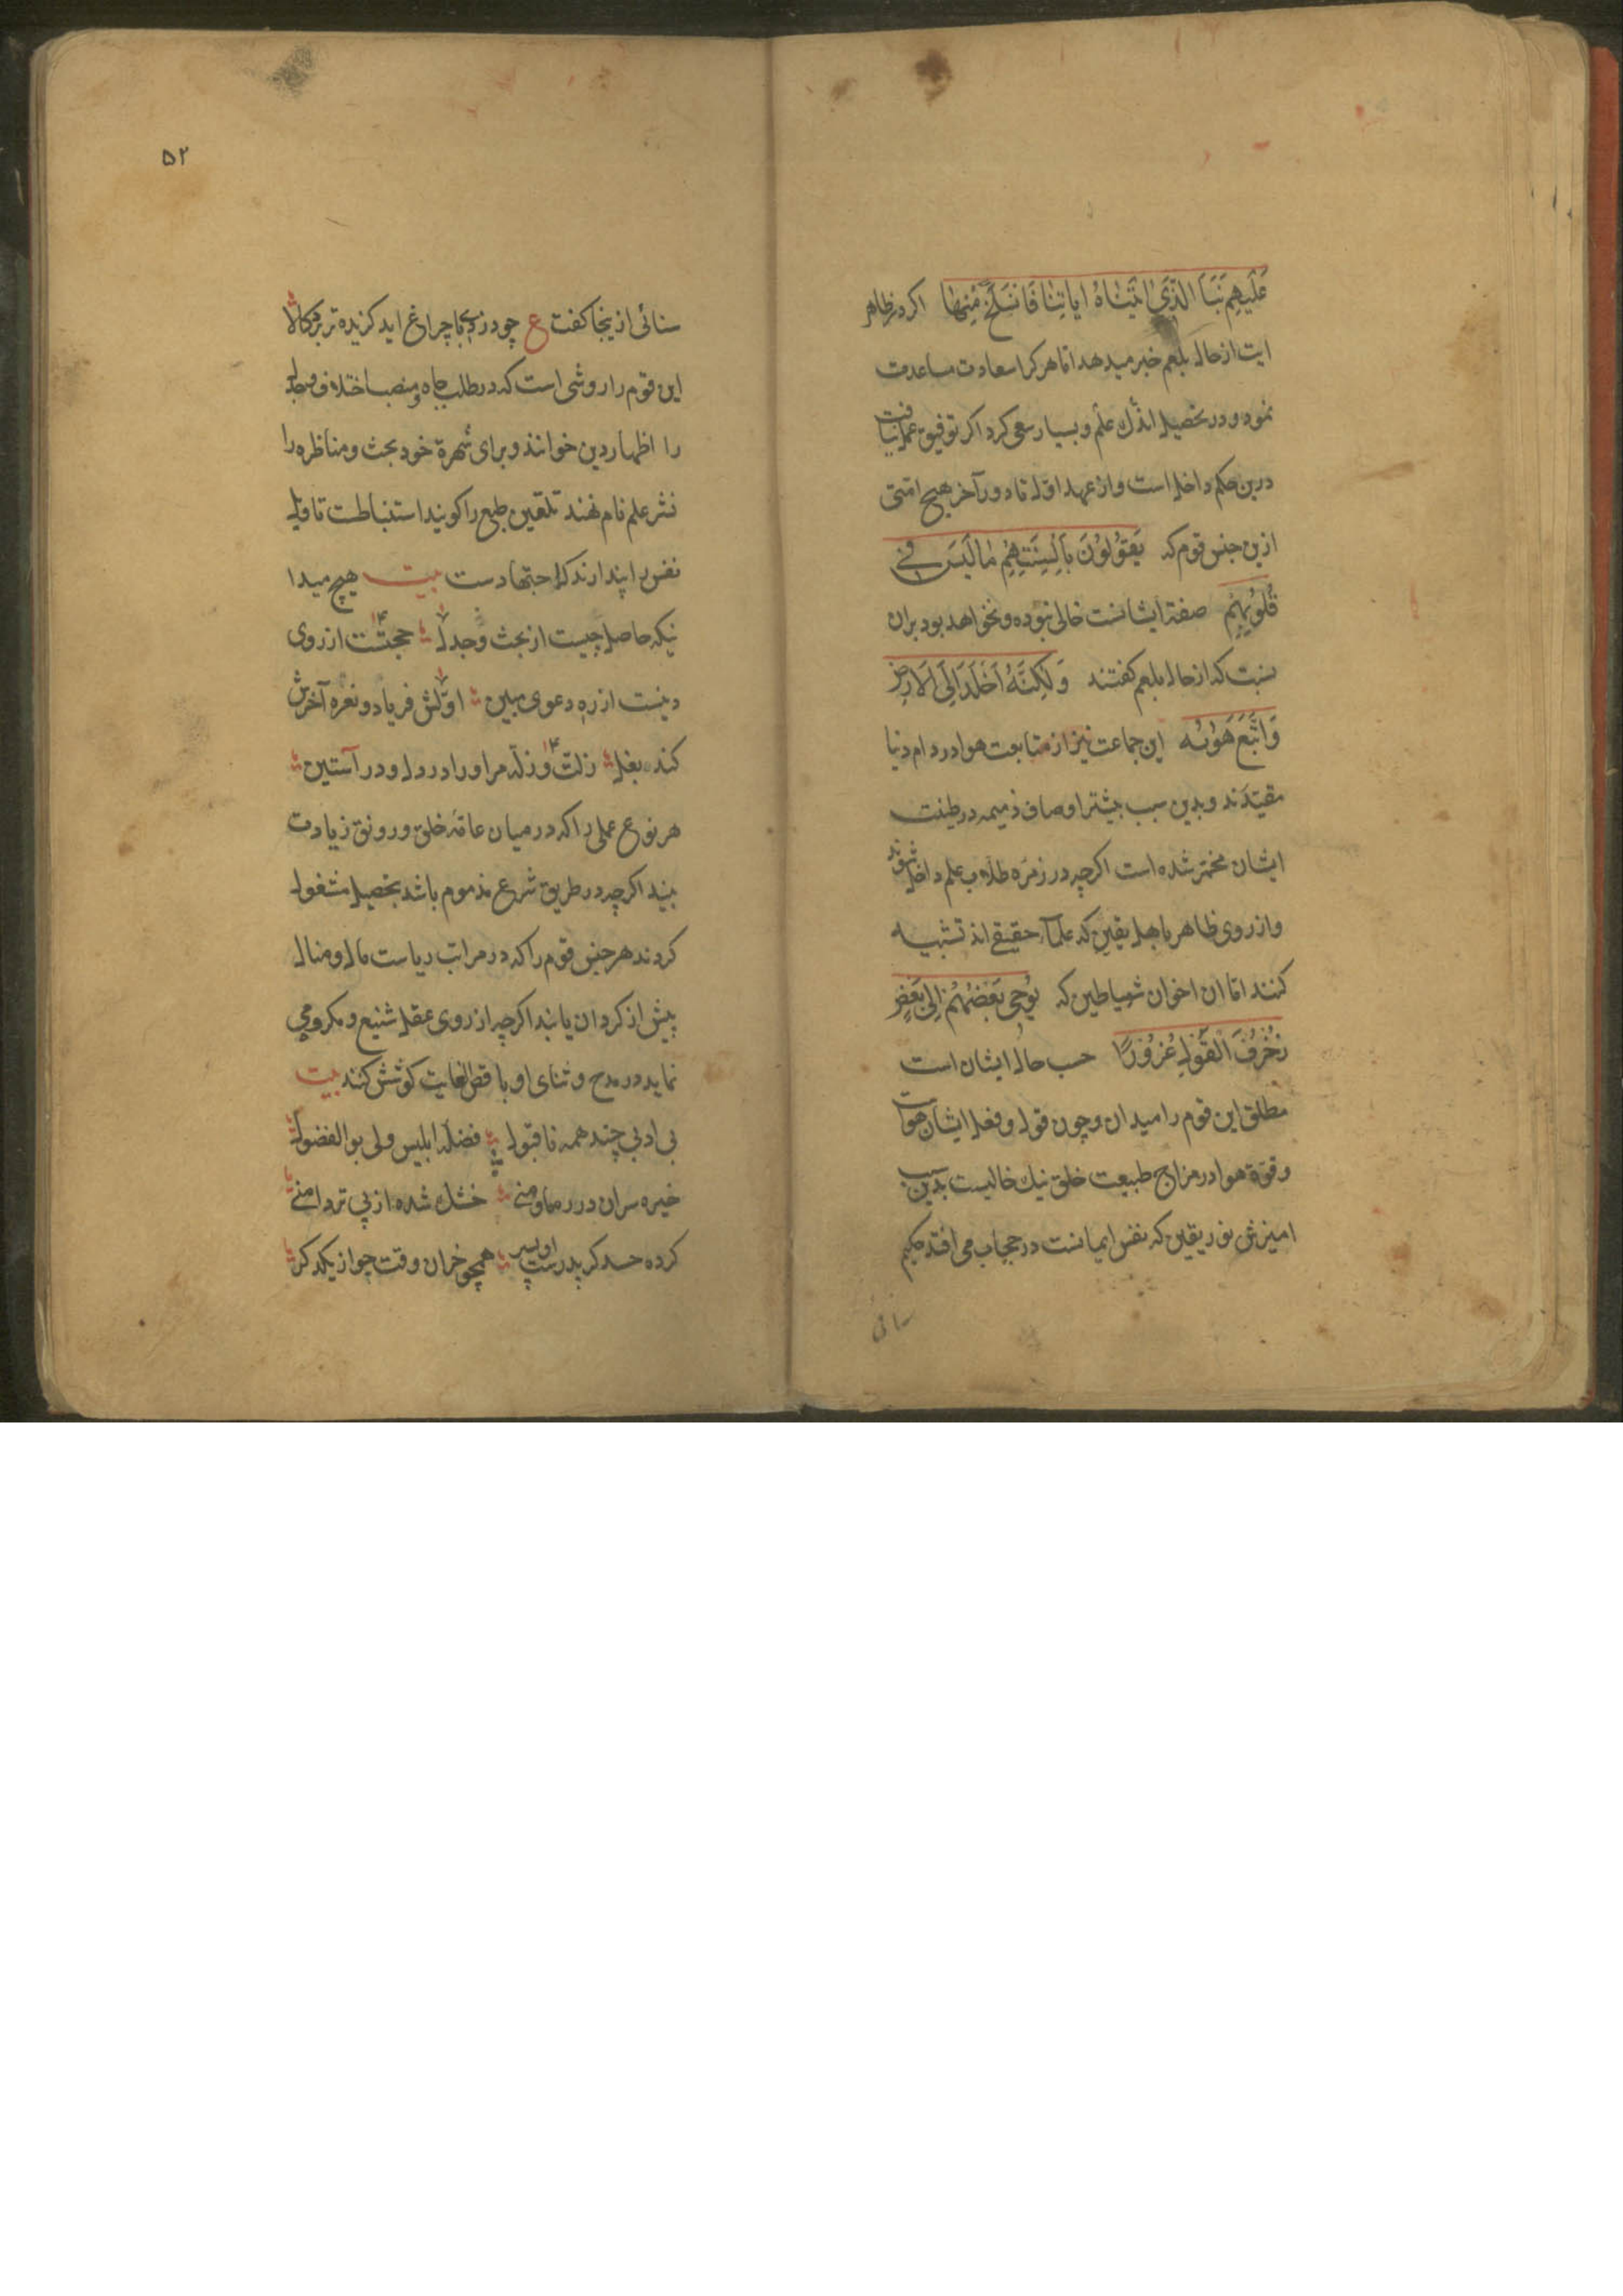 عَلَيهِم نَبَأَ الَّذِی اتَیناهُ ایاتِنَا فَانسَلَخَ مِنهَا اکر در ظاهر
ایت از حال بلعم خبر میدهد اما هر کرا سعادت مساعدت
نمود و در تحصیل اندك علم و بسیار سعی کرد اکر توفیق عمل نیافت
درین حکم داخل است و از عهد اول تا دور آخر هیچ امتی
ازین جنس قوم که یَقُولُونَ بِاَلسِنَتِهِم مَا لَیسَ فِی
قُلُوبِهِم صفة ایشانست خالی نبوده و نخواهد بود بران
نسبت که از حال بلعم کفتند وَلٰکِنَّهُ اَخلَدَ اِلَی الاَرضِ
وَاتَّبَعَ هَوٰیهُ این جماعت نیز از متابعت هوا در دام دنیا
مقیدند و بدین سبب بیشتر اوصاف ذمیمه در طینت
ایشان مخمر شده است اکرچه در زمره طلاب علم داخل شوند
و از روی ظاهر باهل یقین که علماء حقیقی اند تشبیه
کنند اما ان اخوان شیاطین که یُوحِی بَعضُهُم اِلٰی بَعضٍ
زُخرُفَ القَولِ غُرُورًا حسب حال ایشان است
مطلق این قوم را میدان و چون قول و فعل ایشان هواست
و قوة هوا در مزاج طبیعت خلق نیك خالیست بدین سبب
امیزش نور یقین که نفس ایمانست در حجاب می افتد حکیم
سنائی
۵۲
سنائی ازینجا کفت ع چو دزدی با چراغ اید کزیده تر برد کالا
این قوم را روشی است که در طلب جاه و منصب اختلاف و جدل
را اظهار دین خوانند و برای شهرة خود بحث و مناظره را
نشر علم نام نهند تلقین طبع را کویند استنباطست تاویل
نفس را پندارند که اجتهادست بیت هیچ میدا
نیکه حاصل چیست از بحث و جدل حجتست از روی
دینست از ره دعوی ببین اولش فریاد و نعره آخرش
کند بغل زلت و زله مر او را در دل و در آستین
هر نوع عملی را که در میان عامه خلق و رونق زیادت
بیند اکرچه در طریق شرع مذموم باشد بتحصیل مشغول
کردند هر جنس قوم را که در مراتب ریاست مال و منال
پیش از کردان یابند اکرچه از روی عقل شنیع و مکروه می
نماید در مدح و ثنای او با قصی الغایت کوشش کنند بیت
بی ادبی چند همه ناقبول فضله ابلیس ولی بو الفضول
خیره سران در ره ما و منی خشك شده از پی تردامنی
کرده حسد کر پدرست او پسر همچو خران وقت جو از یکدکر